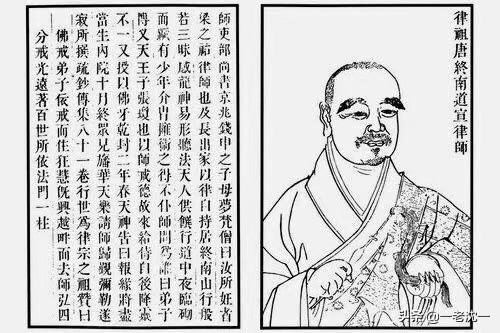 律祖唐終南道宣律師
師吏部尚書京兆錢申之子母夢梵僧曰汝所妊者
梁之祐律師也及長出家以律自持居終南山行般
若三昧感龍神易形聽法天人供饌行道中夜臨砌
而顛有少年介冑擁衞之得不仆師問爲誰曰弟子
博叉天王子張瓊也以師戒德故來給待自後降靈
不一又授以佛牙乾封二年春天神告曰報緣將盡
當生內院十月終衆見旛華天樂請師歸覲彌勒遂
寂所撰疏鈔傳集八十一卷行世爲律宗之祖贊曰
佛戒弟子依戒而住狂慧旣興越畔而去師弘四
分戒光遠著百世所依法門一柱
头条 @一老沈一